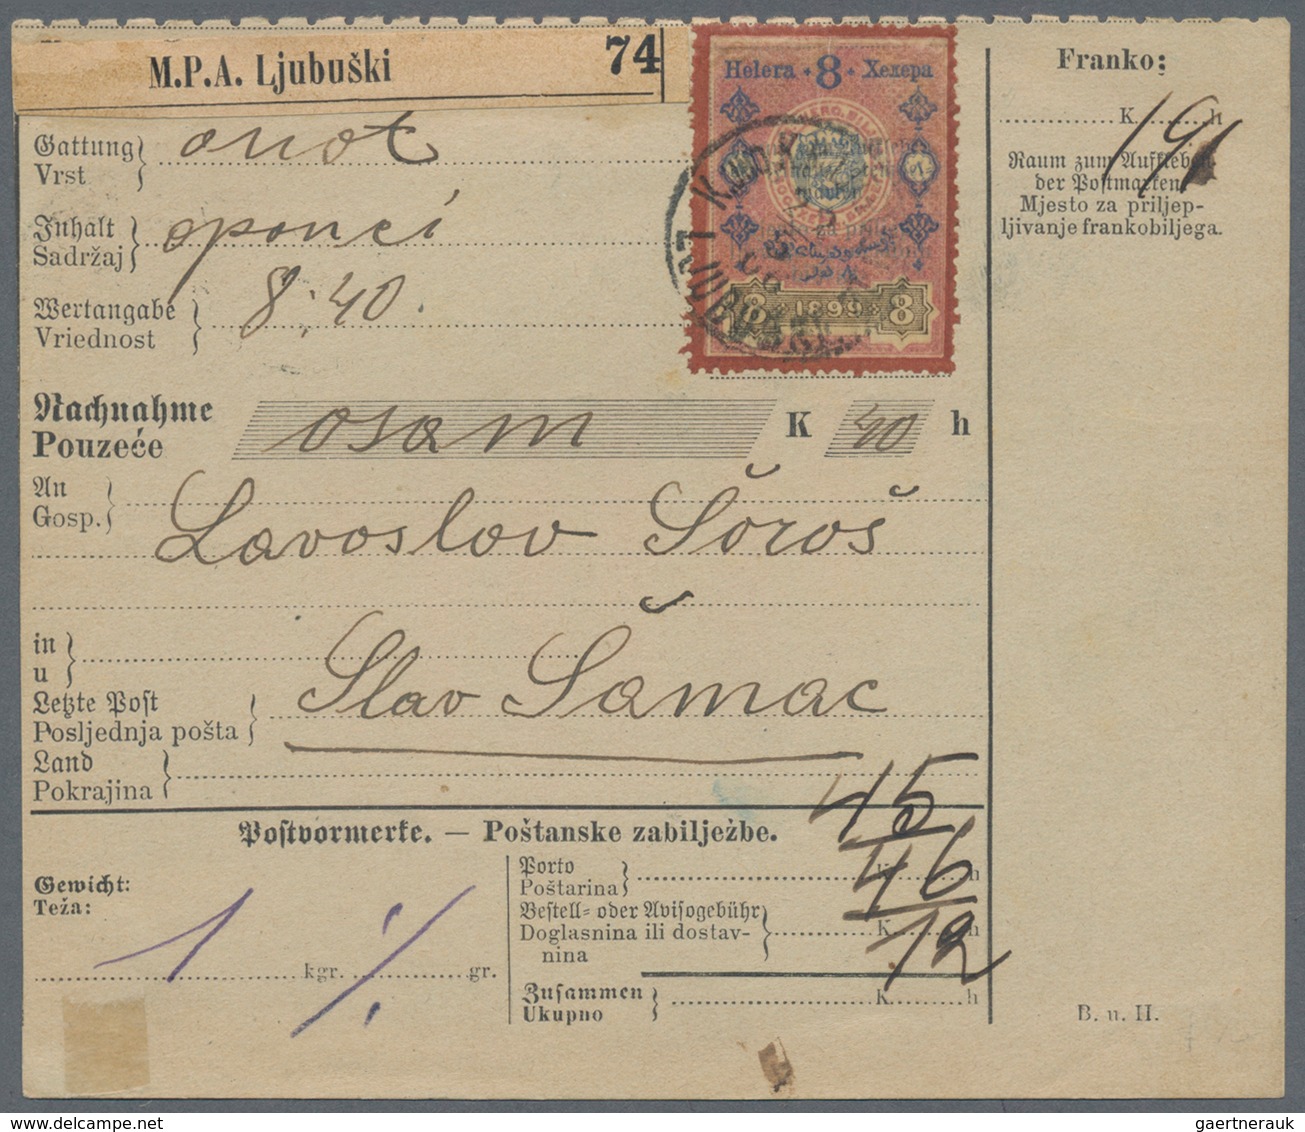 M.P.A. Ljubuški 74
Helera 8 Хелера
1899
8 8
Franko:
K h
191
Raum zum Aufkleben
der Postmarken
Mjesto za priljep-
ljivanje frankobiljega.
Gattung
Vrst
omot
Inhalt
Sadržaj
oponci
Wertangabe
Vriednost
8.40
LJUBUŠKI
Nachnahme
Pouzeće
osam K 40 h
An
Gosp.
Lavoslov Šoroš
in
u
Letzte Post
Posljednja pošta
Slav Šamac
Land
Pokrajina
Postvormerke. — Poštanske zabilježbe.
45
Gewicht:
Teža:
1 kgr. ·/. gr.
Porto
Poštarina
K
46
Bestell- oder Avisogebühr
Doglasnina ili dostav-
nina
K h
12
Zusammen
Ukupno
K h
B. u. H.
gaertnerauk@ebay.com